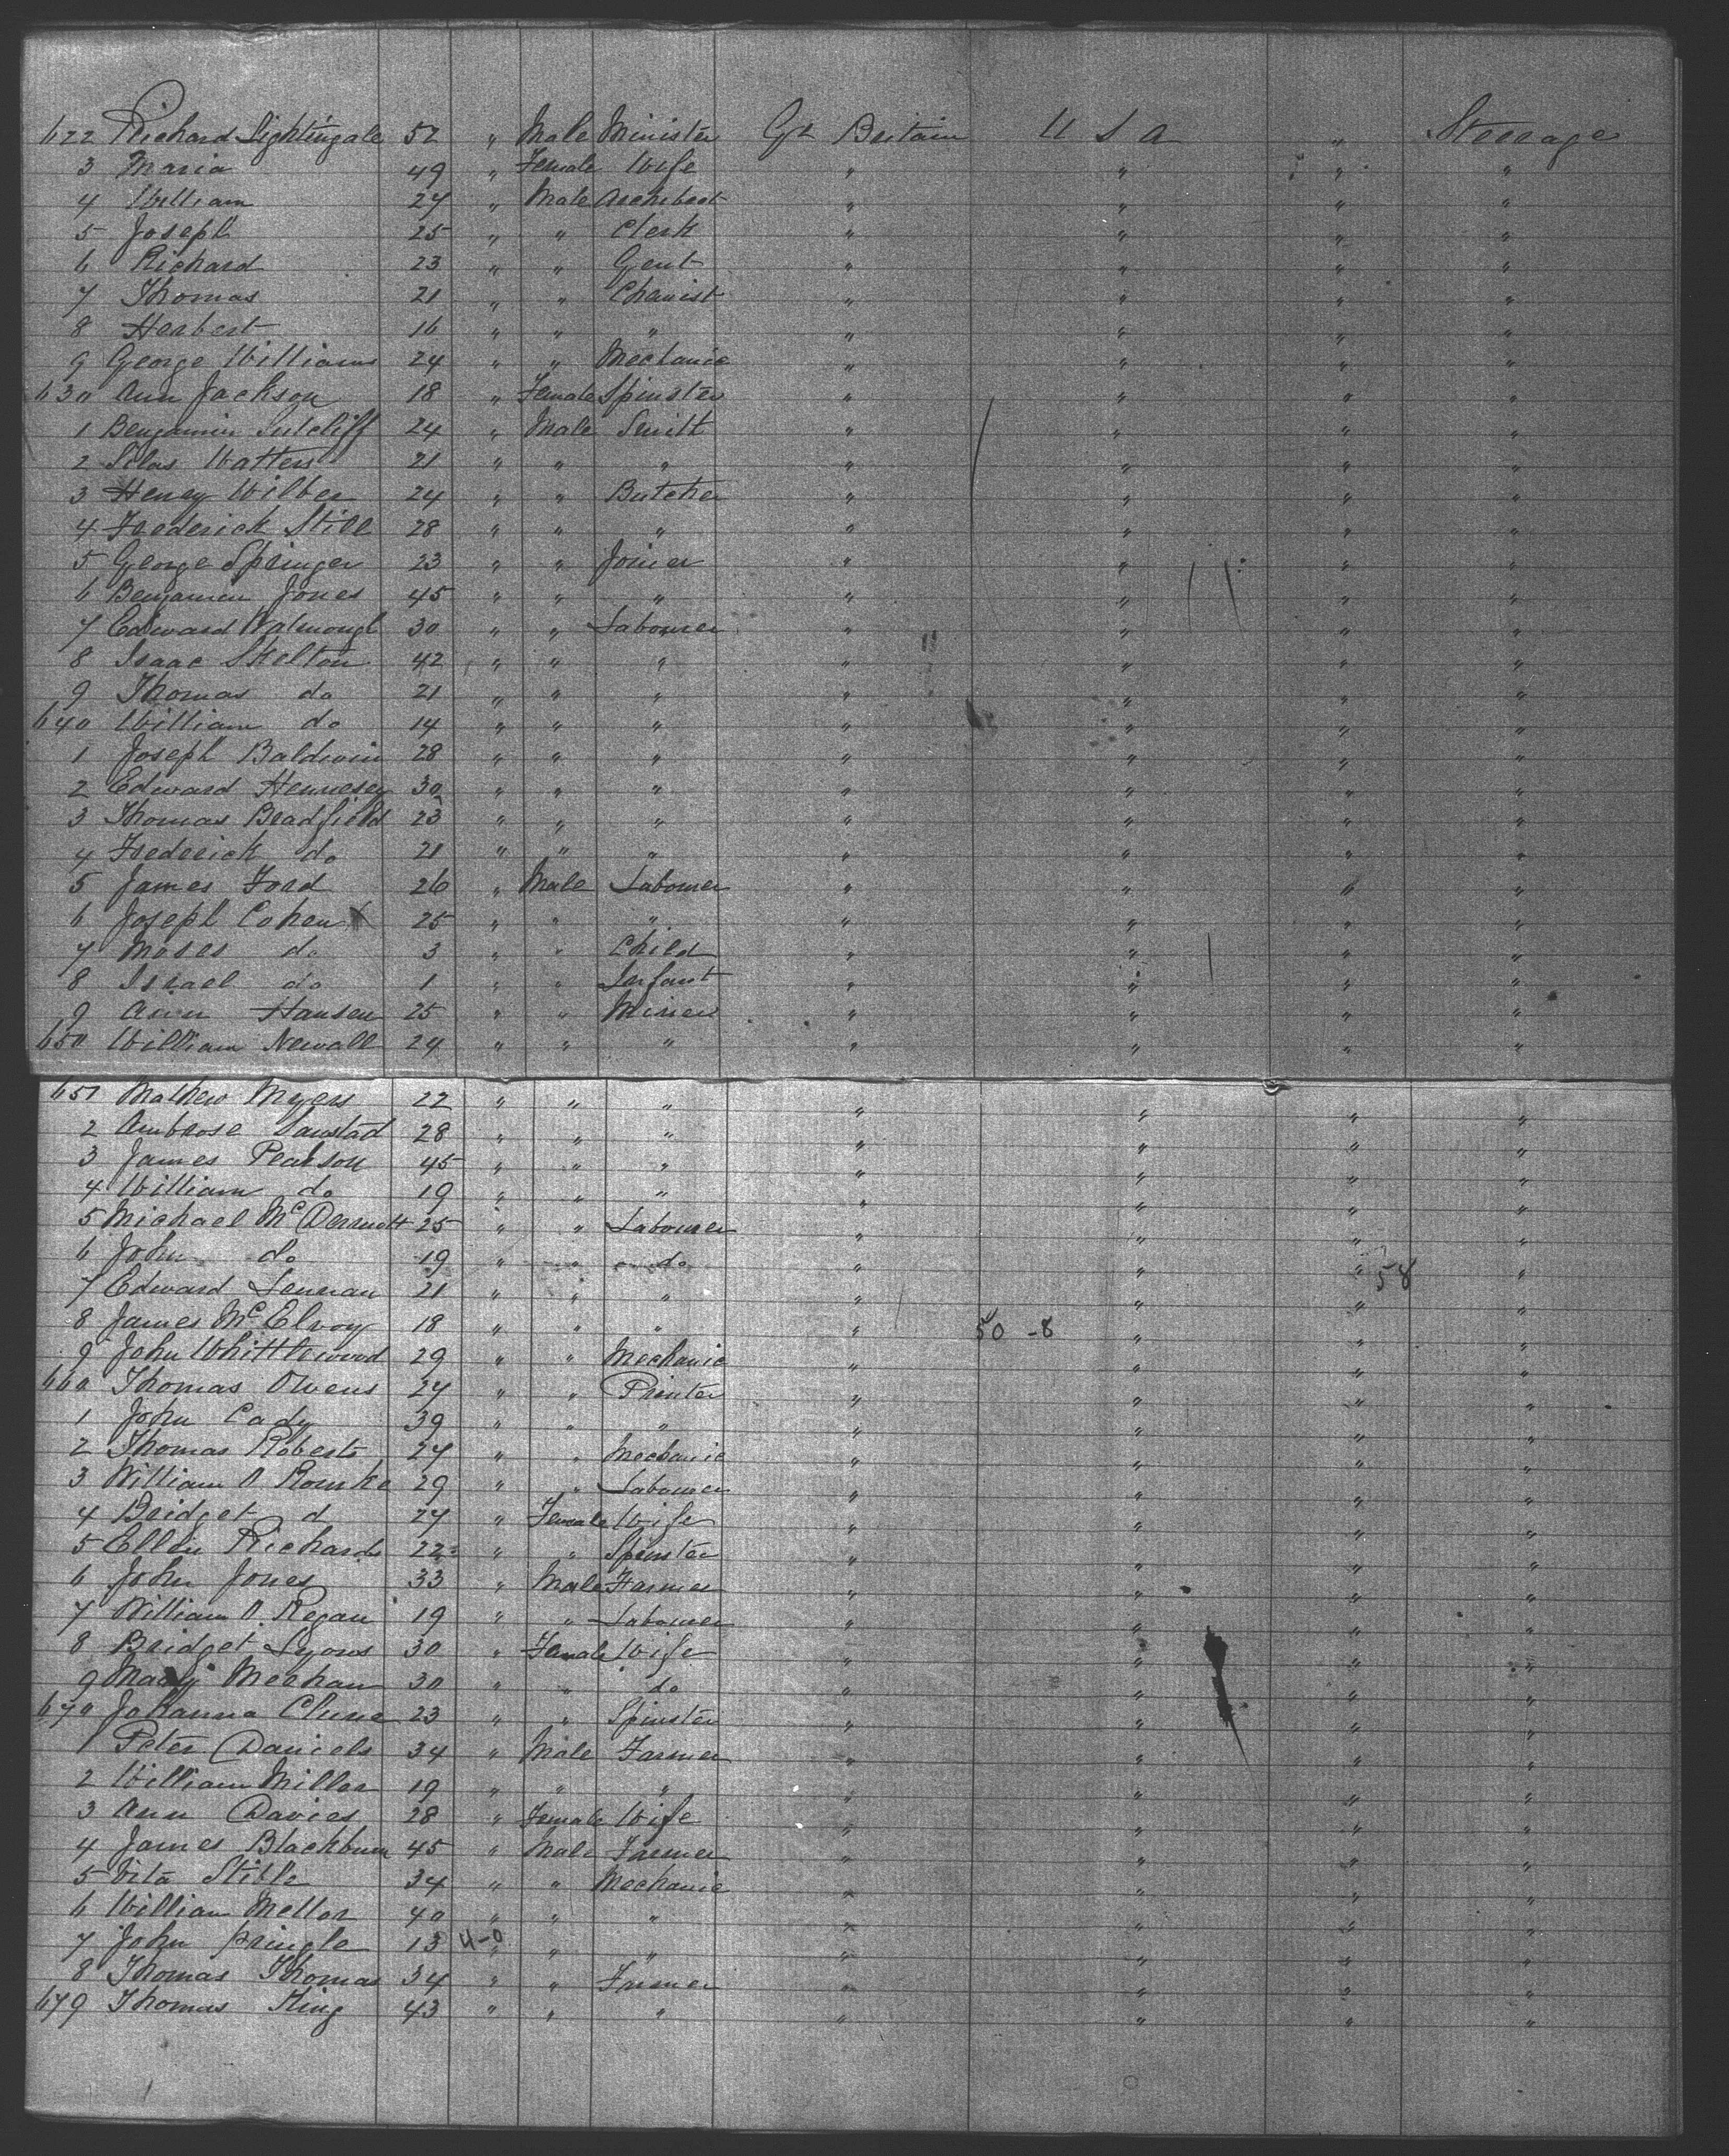 622 Richard Lightingale 52 " Male Minister Gt Britain U S A " Steerage
3 Maria 49 " Female Wife " " " "
4 William 27 " Male Architect " " " "
5 Joseph 25 " " Clerk " " " "
6 Richard 23 " " Gent " " " "
7 Thomas 21 " " Chemist " " " "
8 Herbert 16 " " " " " " "
9 George Williams 24 " " Mechanic " " " "
630 Ann Jackson 18 " Female Spinster " " " "
1 Benjamin Sutcliff 24 " Male Smith " " " "
2 Silas Watters 21 " " " " " " "
3 Henry Wilber 24 " " Butcher " " " "
4 Frederick Still 28 " " " " " " "
5 George Springer 23 " " Joiner " " " "
6 Benjamin Jones 45 " " " " " " "
7 Edward Walmough 30 " " Labourer " " " "
8 Isaac Skelton 42 " " " " " " "
9 Thomas do 21 " " " " " " "
640 William do 14 " " " " " " "
1 Joseph Baldwin 28 " " " " " " "
2 Edward Hennesey 30 " " " " " " "
3 Thomas Bradfield 23 " " " " " " "
4 Frederick do 21 " " " " " " "
5 James Ford 26 " Male Labourer " " " "
6 Joseph Cohen X 25 " " " " " " "
7 Moses do 3 " " Child " " " "
8 Israel do 1 " " Infant " " " "
9 Hansen 25 " " Miner " " " "
650 William Newall 24 " " " " " " "
651 Mathew Myers 22 " " " " " " "
2 Ambrose 28 " " " " " " "
3 James Pearson 45 " " " " " " "
4 William do 19 " " " " " " "
5 Michael McDermott 25 " " Labourer " " " "
6 John do 19 " " do " " " "
58
7 Edward Lennan 21 " " " " " " "
8 James McElroy 18 " " " " 50 -8 " " "
9 John Whittlewood 29 " " Mechanic " " " "
660 Thomas Owens 27 " " Printer " " " "
1 John Cady 39 " " " " " " "
2 Thomas Roberts 27 " " Mechanic " " " "
3 William O Rourke 29 " " Labourer " " " "
4 Bridget d 27 " Female Wife " " " "
5 Ellen Richards 22 " " Spinster " " " "
6 John Jones 33 " Male Farmer " " " "
7 William O. Regan 19 " " Labourer " " " "
8 Bridget Lyons 30 " Female Wife " " " "
9 Mary Meehan 30 " " do " " " "
670 Johanna Clune 23 " " Spinster " " " "
1 Peter Daniels 34 " Male Farmer " " " "
2 William Miller 19 " " " " " " "
3 Ann Davies 28 " Female Wife " " " "
4 James Blackburn 45 " Male Farmer " " " "
5 Vita 34 " " Mechanic " " " "
6 William Mellor 40 " " " " " " "
7 John Pringle 13 4-0 " " " " " " "
8 Thomas Thomas 34 " " Farmer " " " "
679 Thomas King 43 " " " " " " "